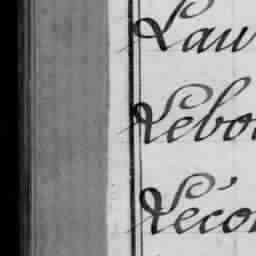 Lau
Lebo
Léco